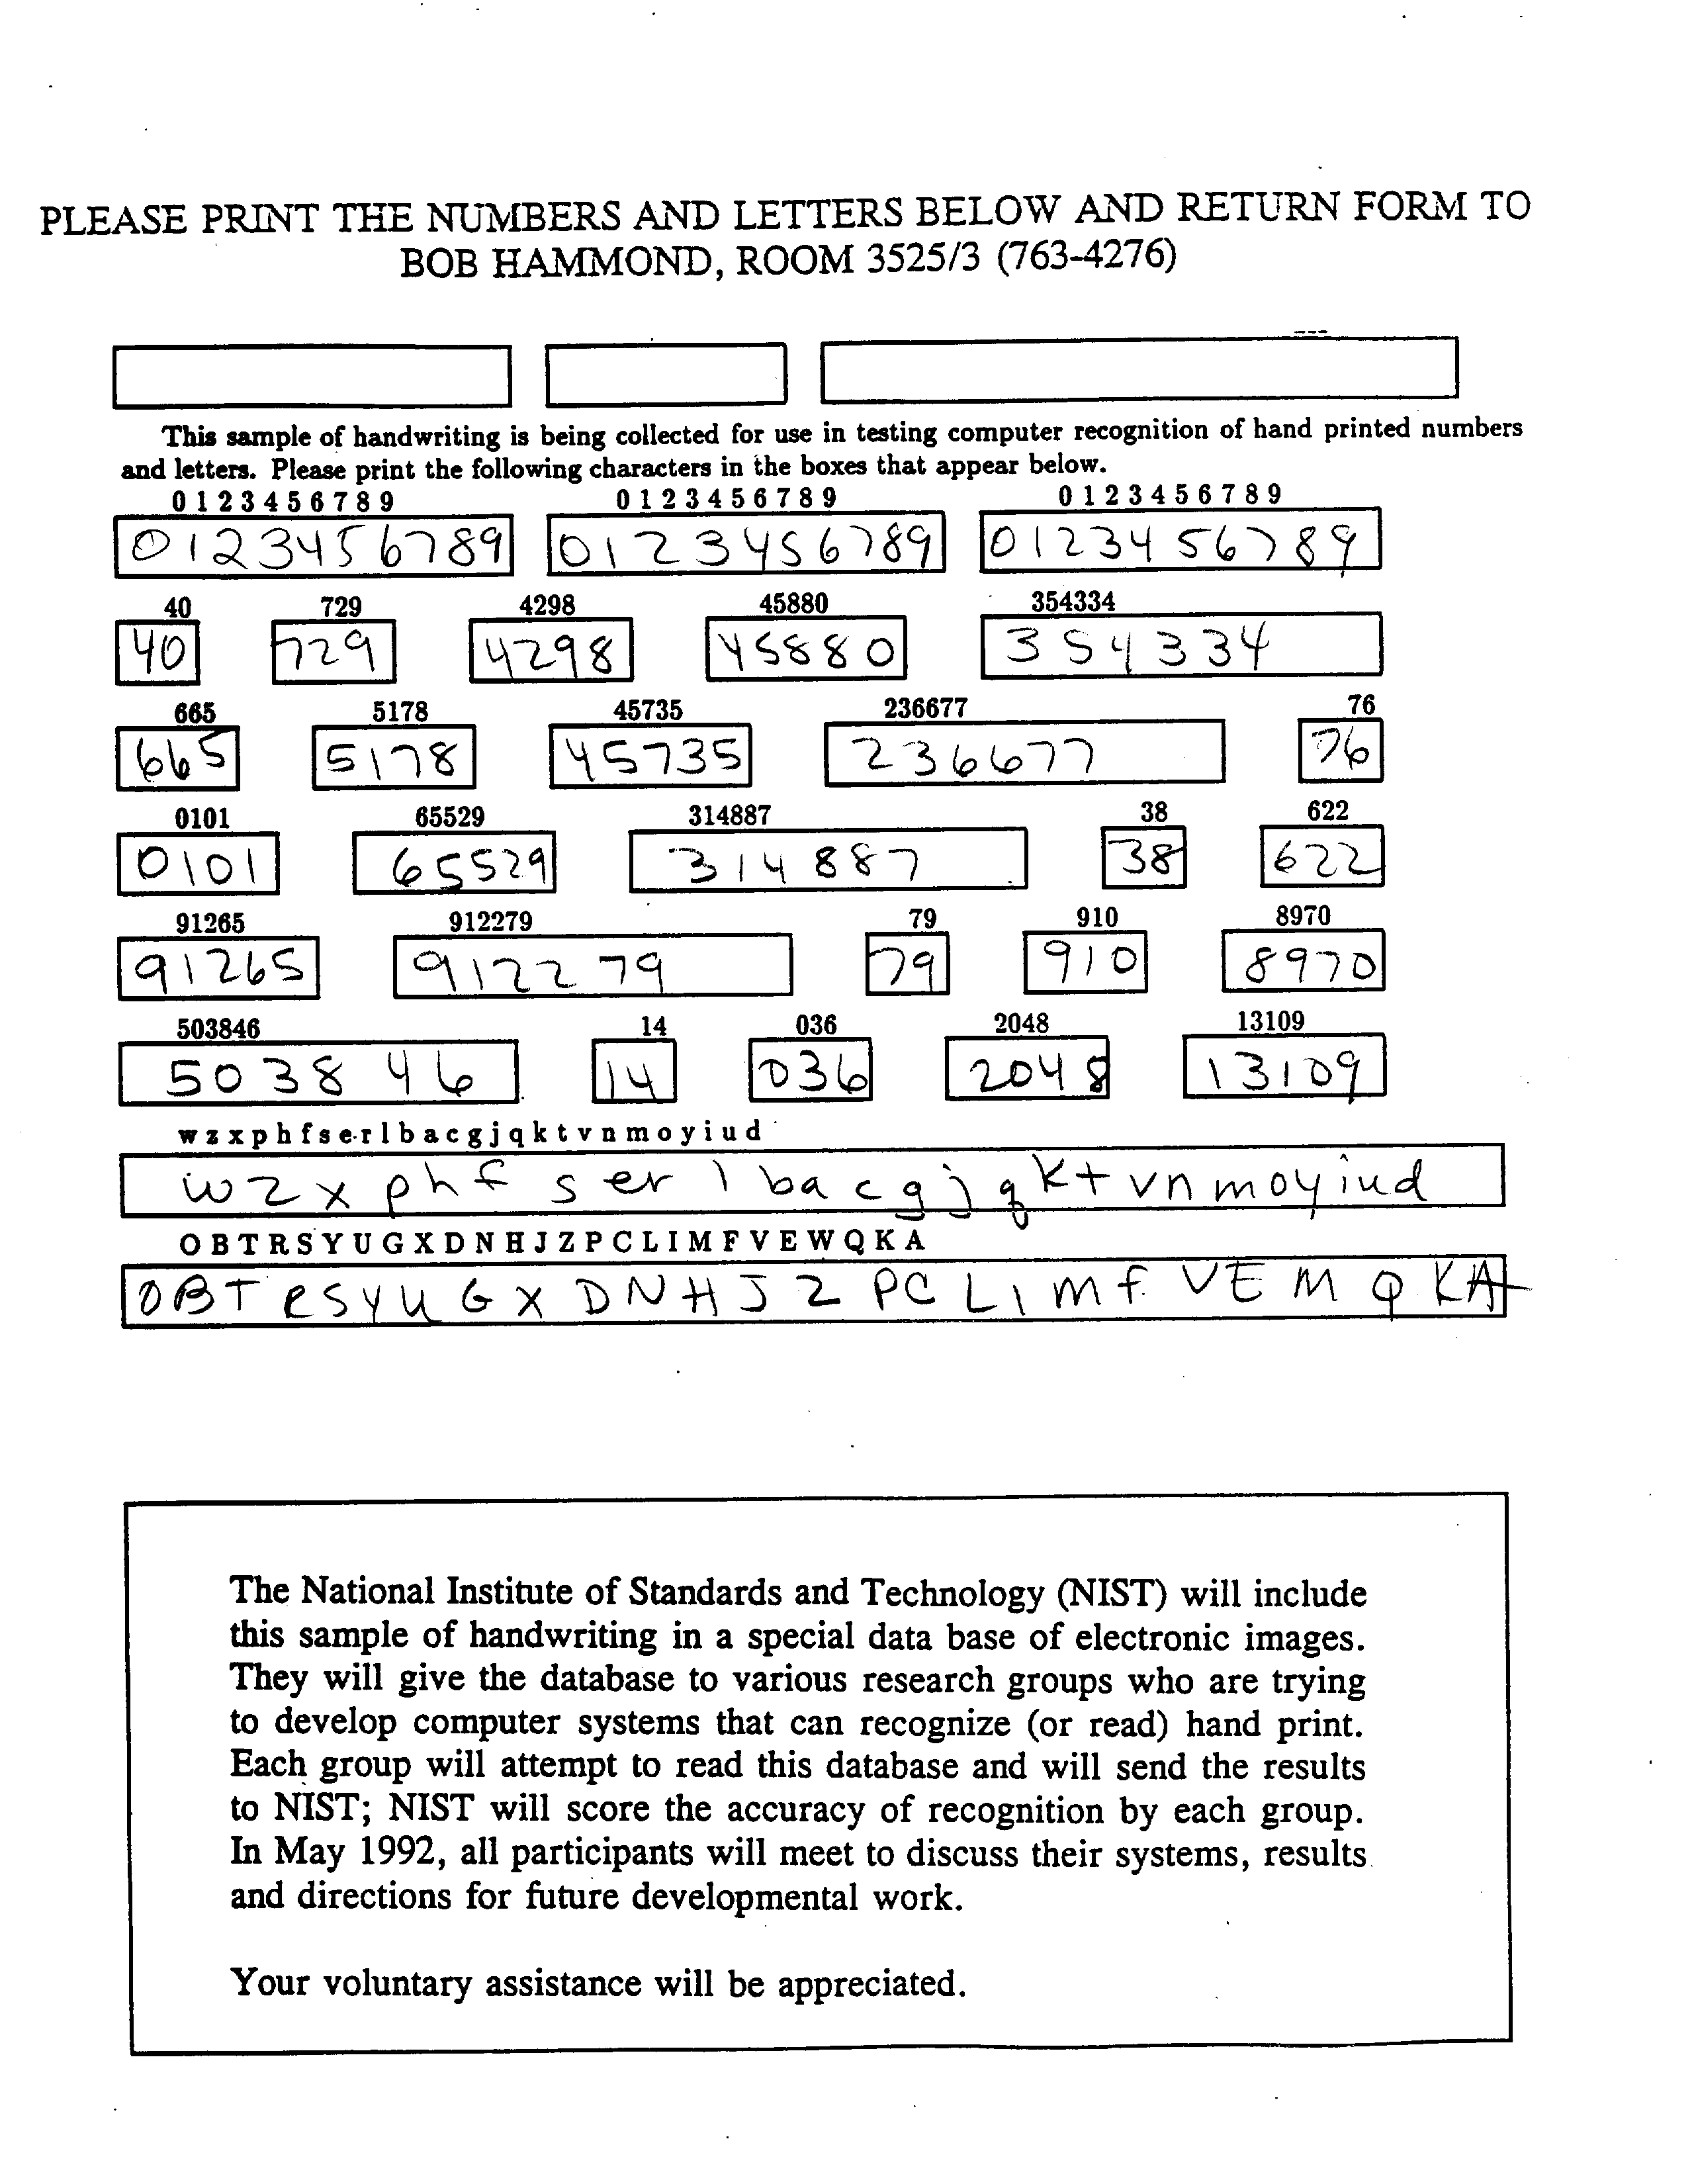 PLEASE PRINT THE NUMBERS AND LETTERS BELOW AND RETURN FORM TO
BOB HAMMOND, ROOM 3525/3 (763-4276)
This sample of handwriting is being collected for use in testing computer recognition of hand printed numbers
and letters. Please print the following characters in the boxes that appear below.
0 1 2 3 4 5 6 7 8 9 0 1 2 3 4 5 6 7 8 9 0 1 2 3 4 5 6 7 8 9
0123456789 0123456789 0123456789
40 729 4298 45880 354334
40 729 4298 45880 354334
665 5178 45735 236677 76
665 5178 45735 236677 76
0101 65529 314887 38 622
0101 65529 314887 38 622
91265 912279 79 910 8970
91265 912279 79 910 8970
503846 14 036 2048 13109
503846 14 036 2048 13109
w z x p h f s e r l b a c g j q k t v n m o y i u d
w z x p h f s e r l b a c g j q k t v n m o y i u d
O B T R S Y U G X D N H J Z P C L I M F V E W Q K A
O B T R S Y U G X D N H J Z P C L I M F V E M Q K A
The National Institute of Standards and Technology (NIST) will include
this sample of handwriting in a special data base of electronic images.
They will give the database to various research groups who are trying
to develop computer systems that can recognize (or read) hand print.
Each group will attempt to read this database and will send the results
to NIST; NIST will score the accuracy of recognition by each group.
In May 1992, all participants will meet to discuss their systems, results
and directions for future developmental work.
Your voluntary assistance will be appreciated.